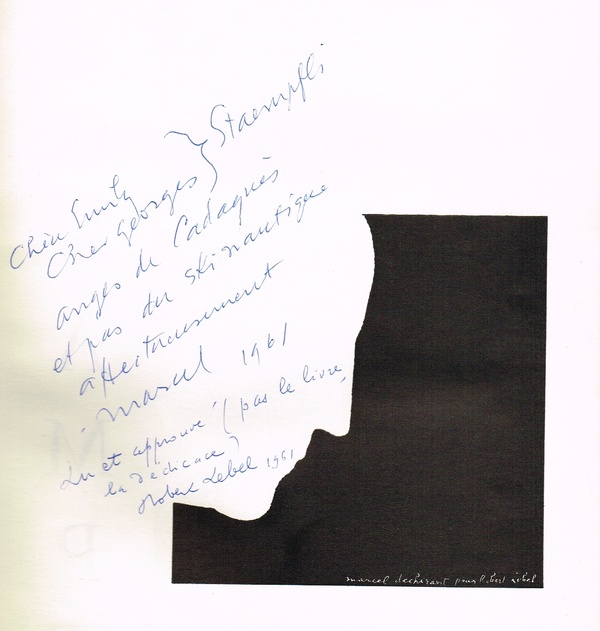 Chère Emily
Cher Georges } Staempfli
anges de Cadaquès
et pas du ski nautique
affectueusement
marcel 1961
Lu et approuvé (pas le livre,
la dédicace)
Robert Lebel 1961
marcel dechiravit pour Robert Lebel